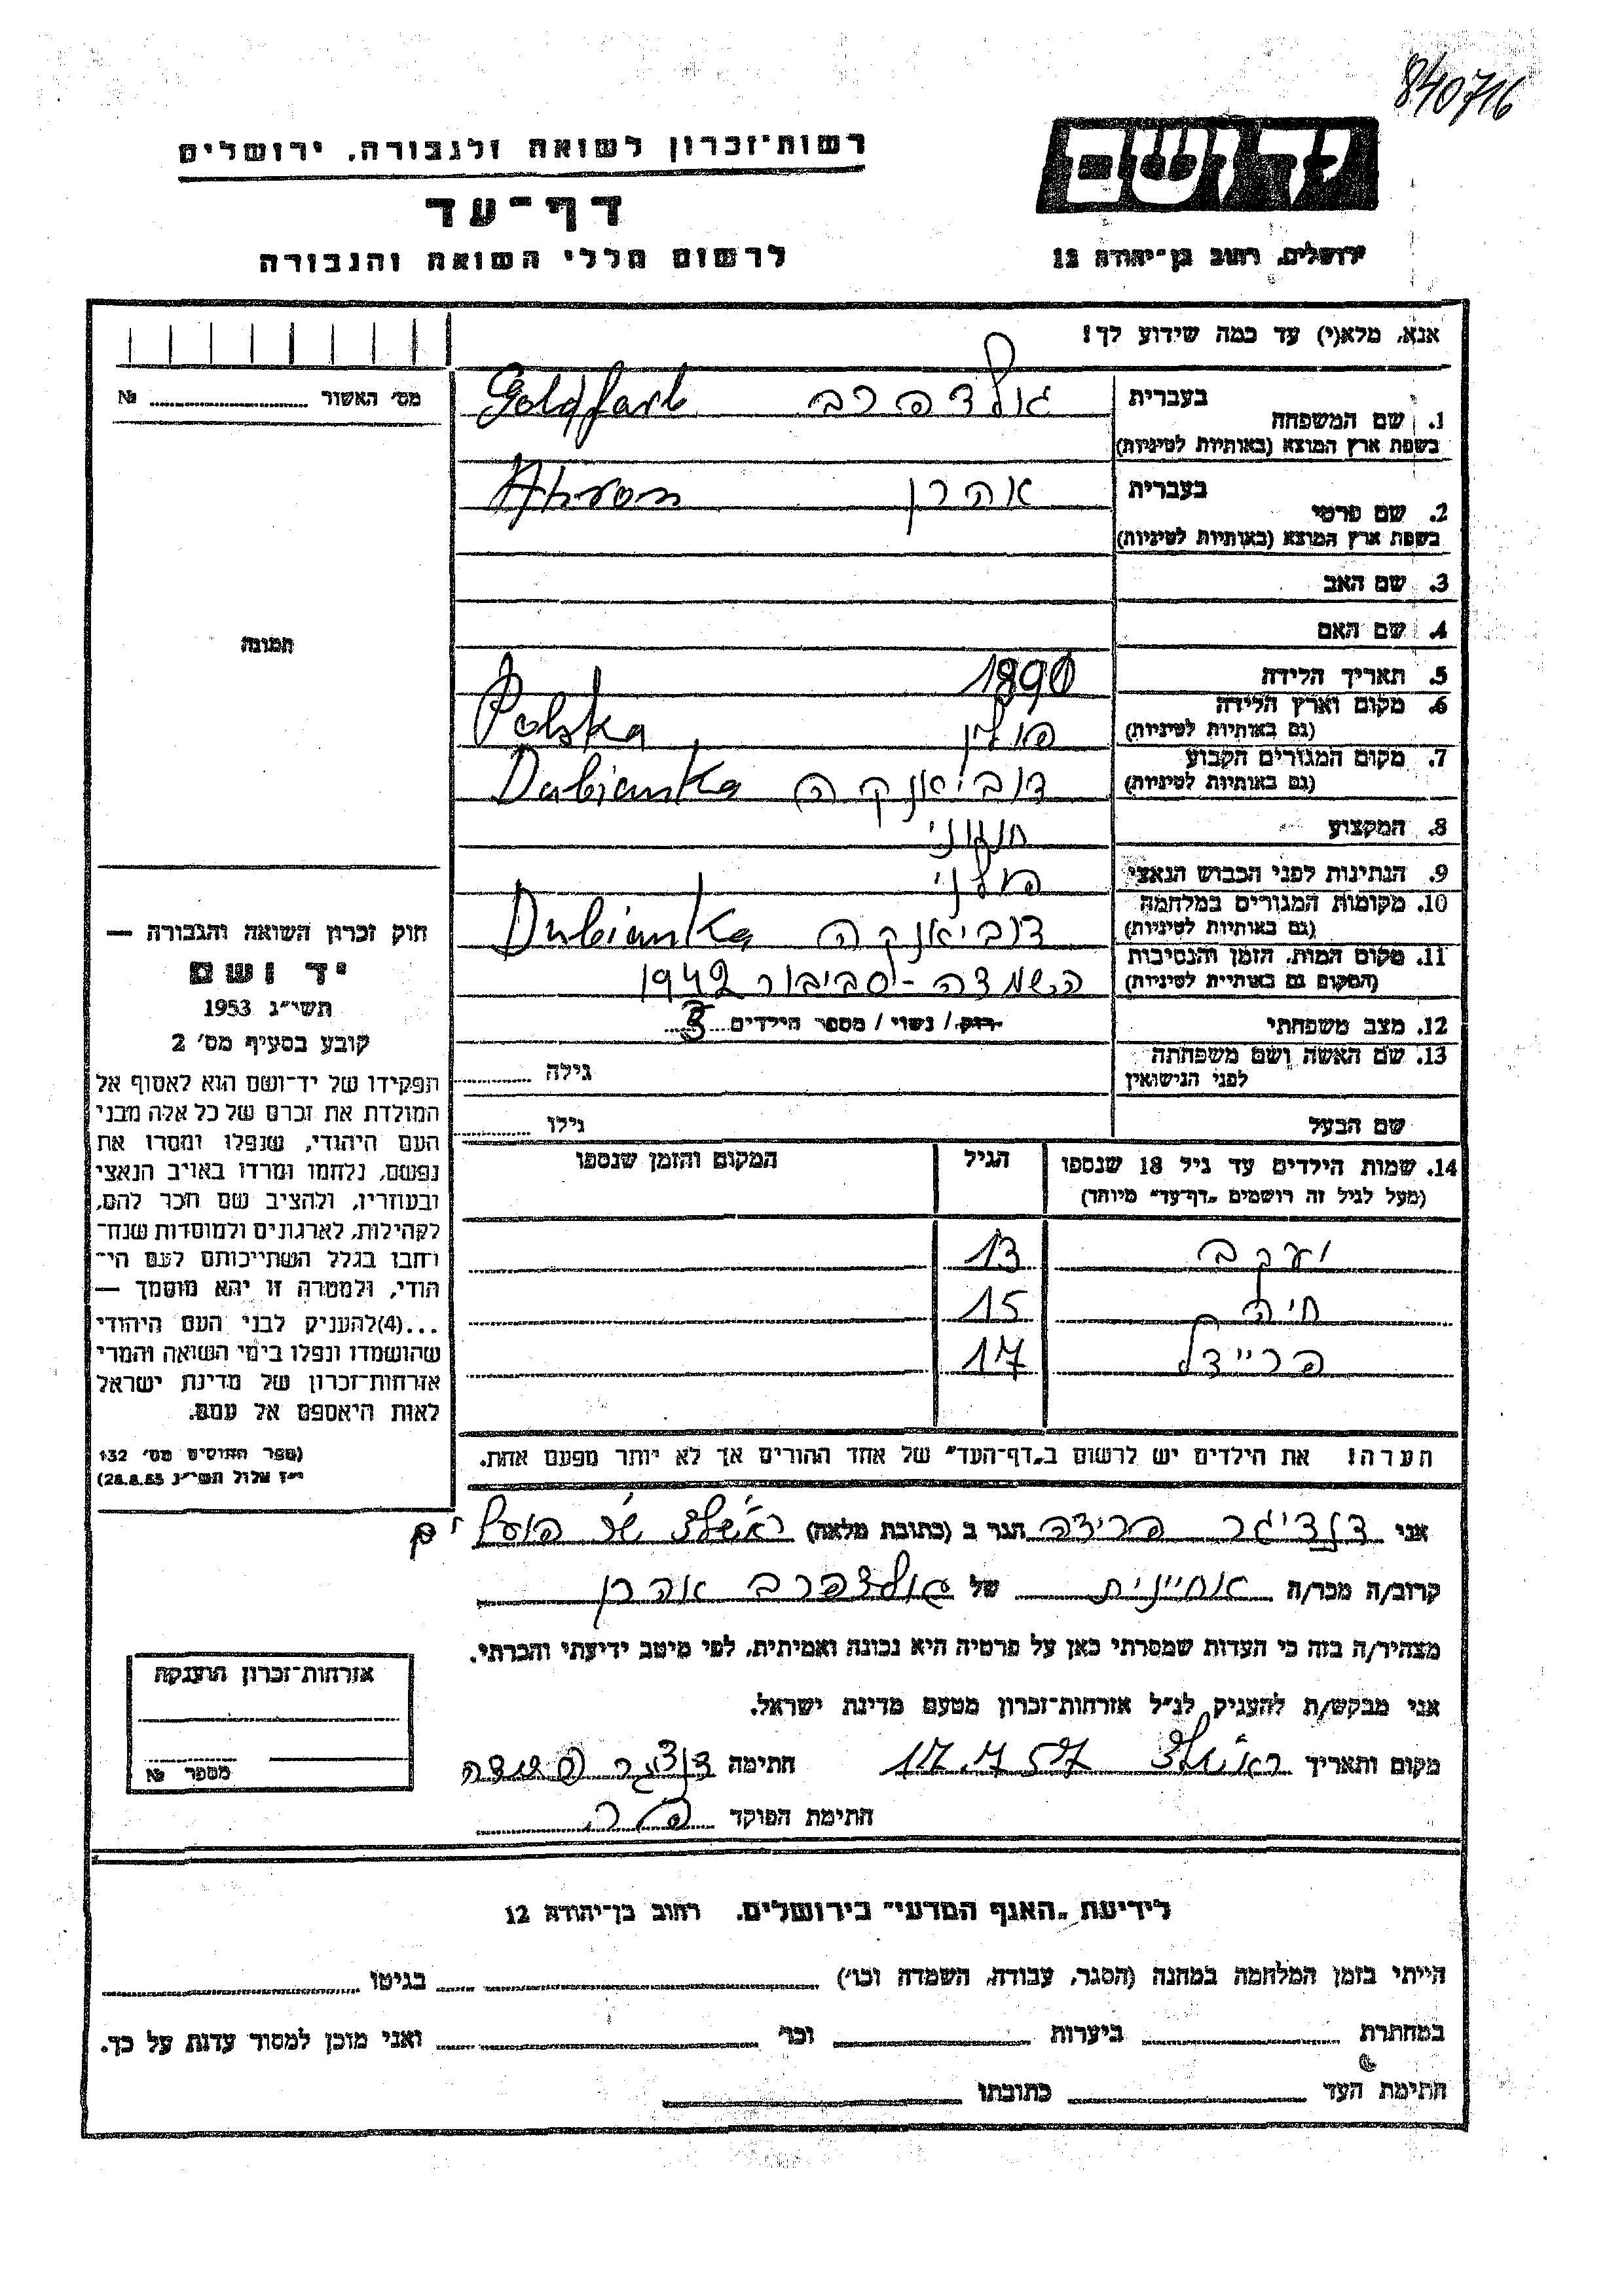 840716
יד ושם
רשות-זכרון לשואה ולגבורה, ירושלים
דף-עד
לרשום חללי השואה והגבורה
ירושלים, רחוב בן-יהודה 12
אנא, מלא(י) עד כמה שידוע לך!
מס' האשור № ........
1. שם המשפחה
בעברית
גולדפרב Goldfarb
בשפת ארץ המוצא (באותיות לטיניות)
2. שם פרטי
בעברית
אהרן Ahron
בשפת ארץ המוצא (באותיות לטיניות)
3. שם האב
4. שם האם
5. תאריך הלידה 1890
6. מקום וארץ הלידה
(גם באותיות לטיניות)
פולין Polska
7. מקום המגורים הקבוע
(גם באותיות לטיניות)
דוביאנקה Dubianka
8. המקצוע חנוני
9. הנתינות לפני הכבוש הנאצי פולני
10. מקומות המגורים במלחמה
(גם באותיות לטיניות)
דוביאנקה Dubianka
11. מקום המות, הזמן והנסיבות
(המקום גם באותיות לטיניות)
השמדה - סביבור 1942
12. מצב משפחתי
רוק / נשוי / מספר הילדים 3
13. שם האשה ושם משפחתה
לפני הנישואין
גילה ........
שם הבעל
גילו ........
14. שמות הילדים עד גיל 18 שנספו
(מעל לגיל זה רושמים "דף-עד" מיוחד)
הגיל
המקום והזמן שנספו
יעקב 13
חיה 15
פריידל 17
הערה! את הילדים יש לרשום ב"דף-העד" של אחד ההורים אך לא יותר מפעם אחת.
תמונה
חוק זכרון השואה והגבורה —
יד ושם
תשי"ג 1953
קובע בסעיף מס' 2
תפקידו של יד-ושם הוא לאסוף אל
המולדת את זכרם של כל אלה מבני
העם היהודי, שנפלו ומסרו את
נפשם, נלחמו ומרדו באויב הנאצי
ובעוזריו, ולהציב שם וזכר להם,
לקהילות, לארגונים ולמוסדות שנח-
רחבו בגלל השתייכותם לעם הי-
הודי, ולמטרה זו יהא מוסמך —
...(4) להעניק לבני העם היהודי
שהושמדו ונפלו בימי השואה והמרי
אזרחות-זכרון של מדינת ישראל
לאות היאספם אל עמם.
(ספר החוקים מס' 132
י"ז אלול תשי"ג 28.8.53)
אני דנציגר פרידה הגר ב (כתובת מלאה) ראשלצ שכ פועלים
קרוב/ה מכר/ה אחיינית של גולדפרב אהרן
מצהיר/ה בזה כי העדות שמסרתי כאן על פרטיה היא נכונה ואמיתית, לפי מיטב ידיעתי והכרתי.
אני מבקש/ת להעניק לנ"ל אזרחות-זכרון מטעם מדינת ישראל.
מקום ותאריך ראשלצ 17.7.57 חתימה
חתימת הפוקד
אזרחות-זכרון הוענקה
מספר №
לידיעת "האגף המדעי" בירושלים, רחוב בן-יהודה 12
הייתי בזמן המלחמה במחנה (הסגר, עבודה, השמדה וכו') ........ בגיטו ........
במחתרת ........ ביערות ........ וכו' ........ ואני מוכן למסור עדות על כך.
חתימת העד ........ כתובתו ........